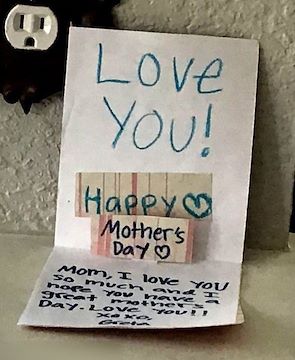 LOVE
YOU!
Happy ♡
Mother's
Day ♡
Mom, I love YOU
so much and I
hope you have a
great mother's
Day. Love You!!
xoxo,
Greta